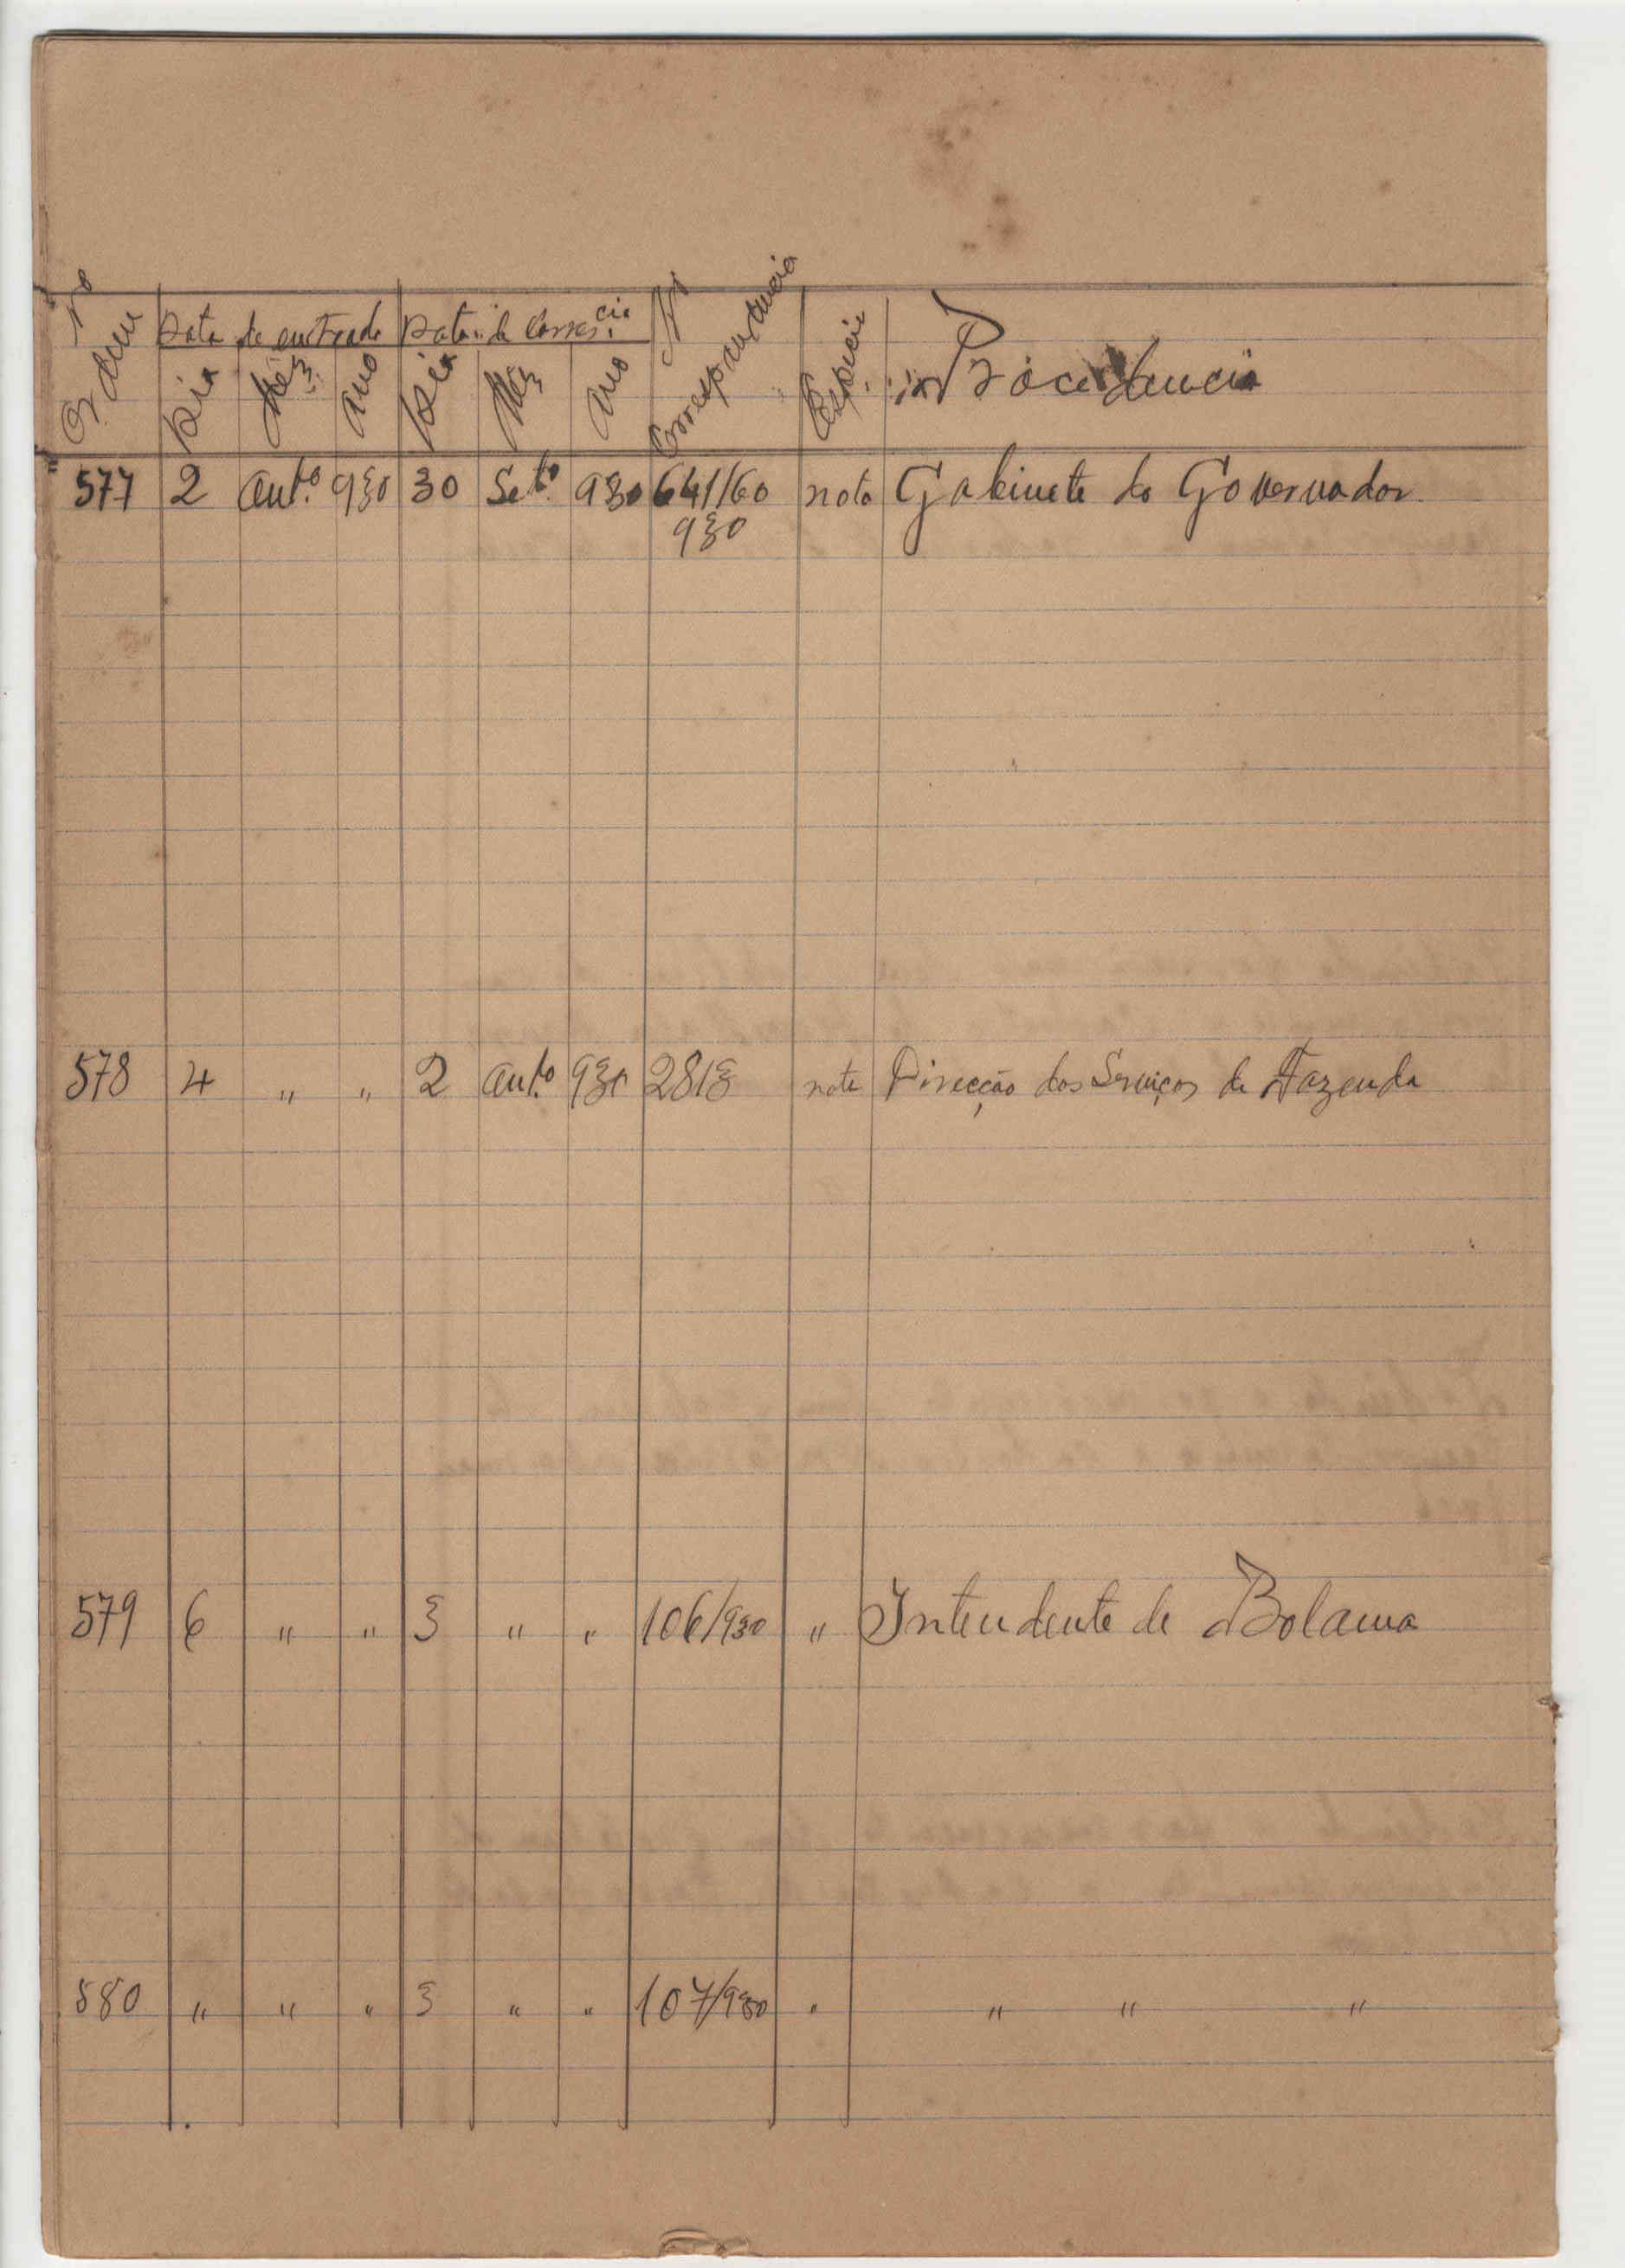 Nº Ordem | Data de entrada | Data da Corres.cia | Nº Correspondencia | Especie | Procedencia
Dia | Mêz | Ano | Dia | Mêz | Ano
577 | 2 | Outº | 930 | 30 | Setº | 930 | 641/60 | nota | Gabinete do Governador
930
578 | 4 | " | " | 2 | Outº | 930 | 2813 | nota | Direcção dos Serviços de Fazenda
579 | 6 | " | " | 3 | " | " | 106/930 | " | Intendente de Bolama
580 | " | " | " | 3 | " | " | 107/930 | " | " " "